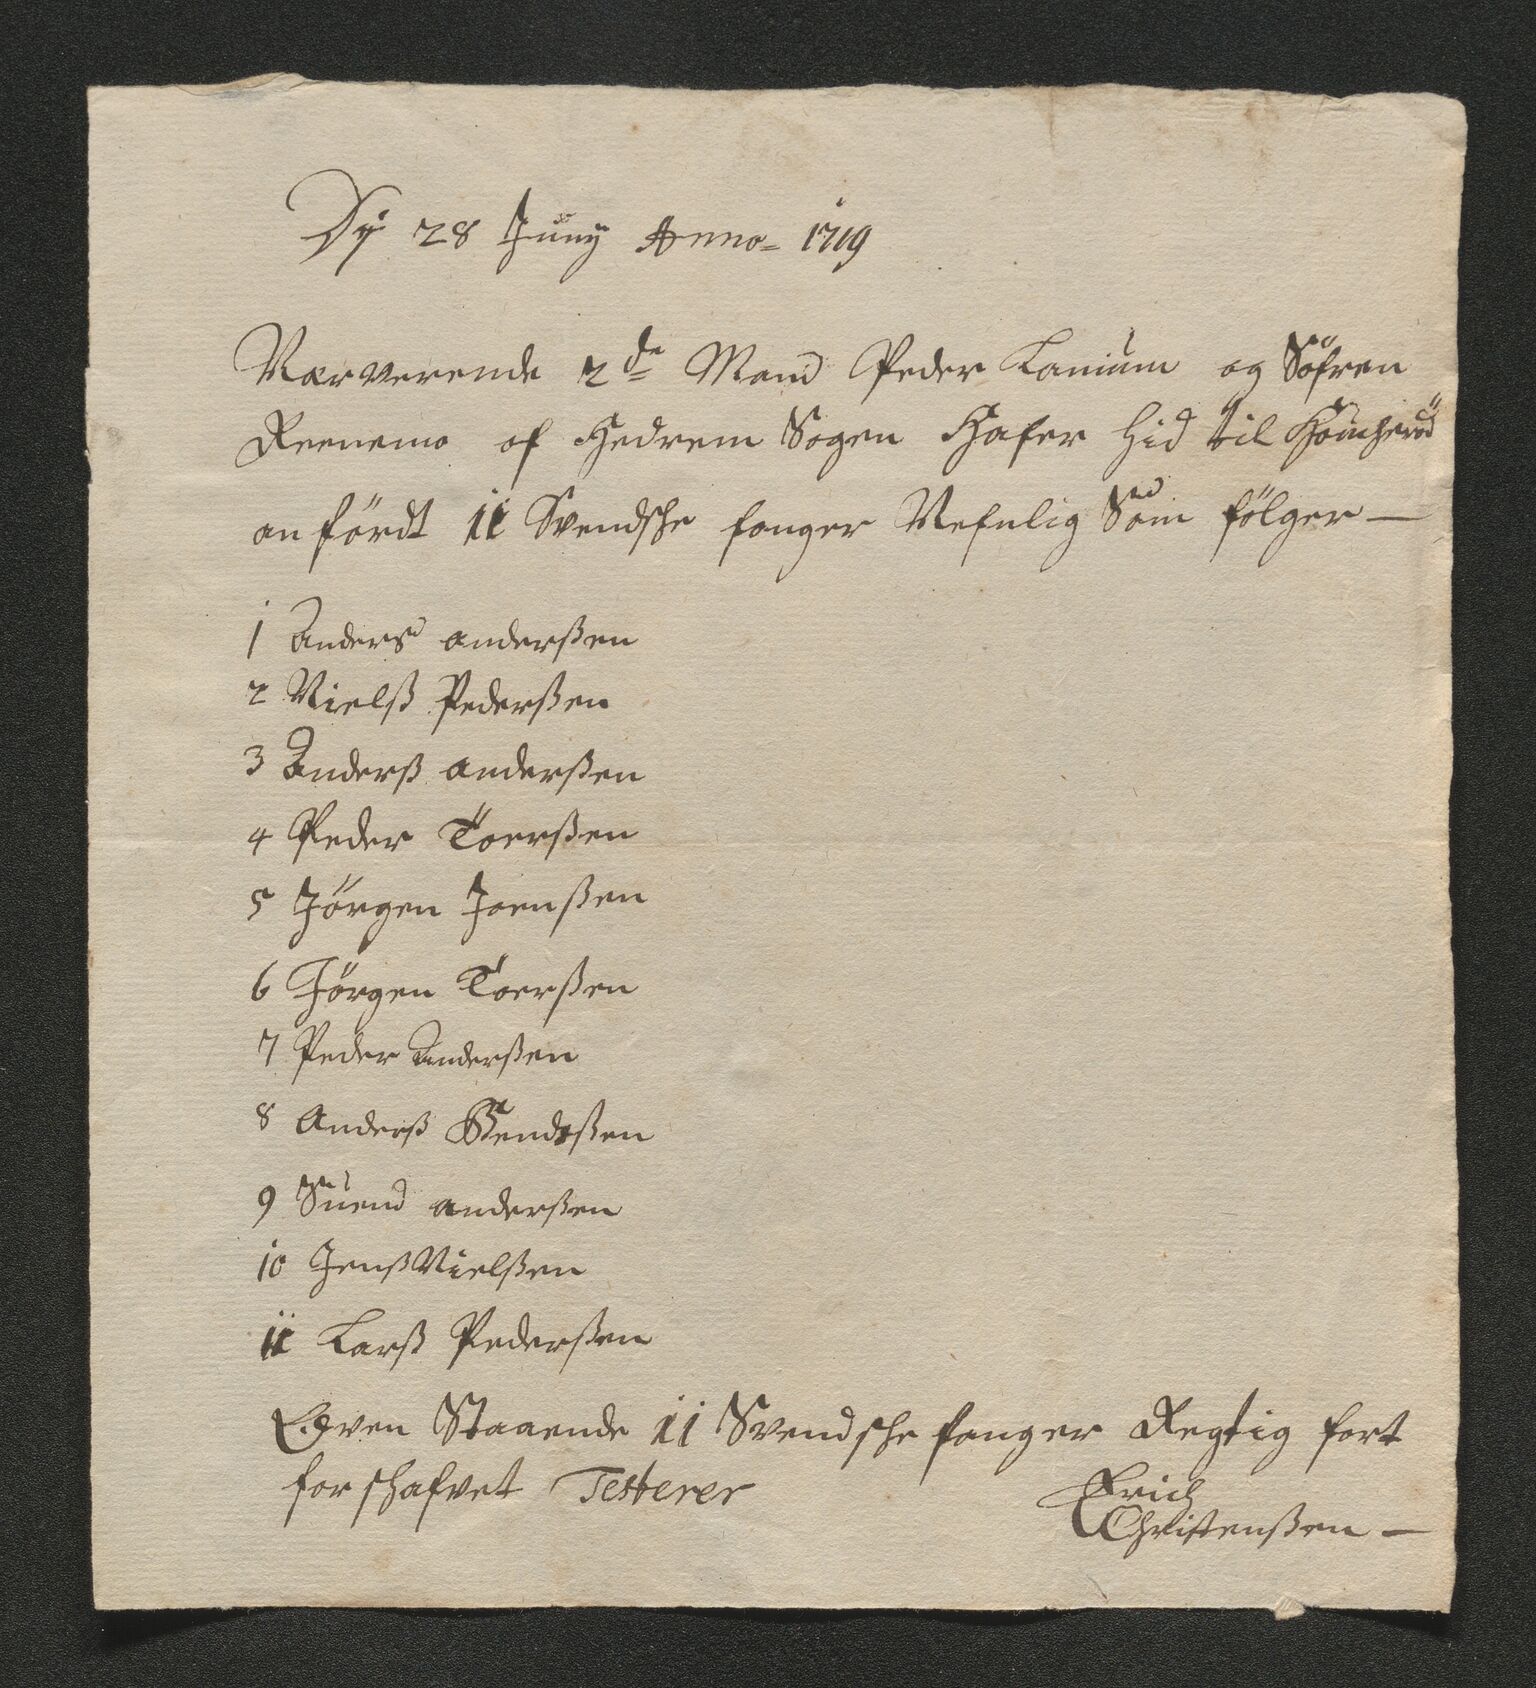 Dy 28 Juny Anno= 1719
Nærverende 2de Mand Peder Lanium og Söfren
Reenemo af Hedrem Sogen Hafer hid til
anfördt 11 Svendshe fanger Nefnlig Som fölger —
1 Anders anderßen
2 Nielß Pederßen
3 Anderß anderßen
4 Peder Toerßen
5 Jörgen Joenßen
6 Jörgen Toerßen
7 Peder Anderßen
8 Anderß Bendtßen
9 Suend anderßen
10 Jenß Nielßen
11 Larß Pederßen
Oven Staaende 11 Svendshe fanger Regtig fort
forshafvet Testerer
Erich
Christenßen —